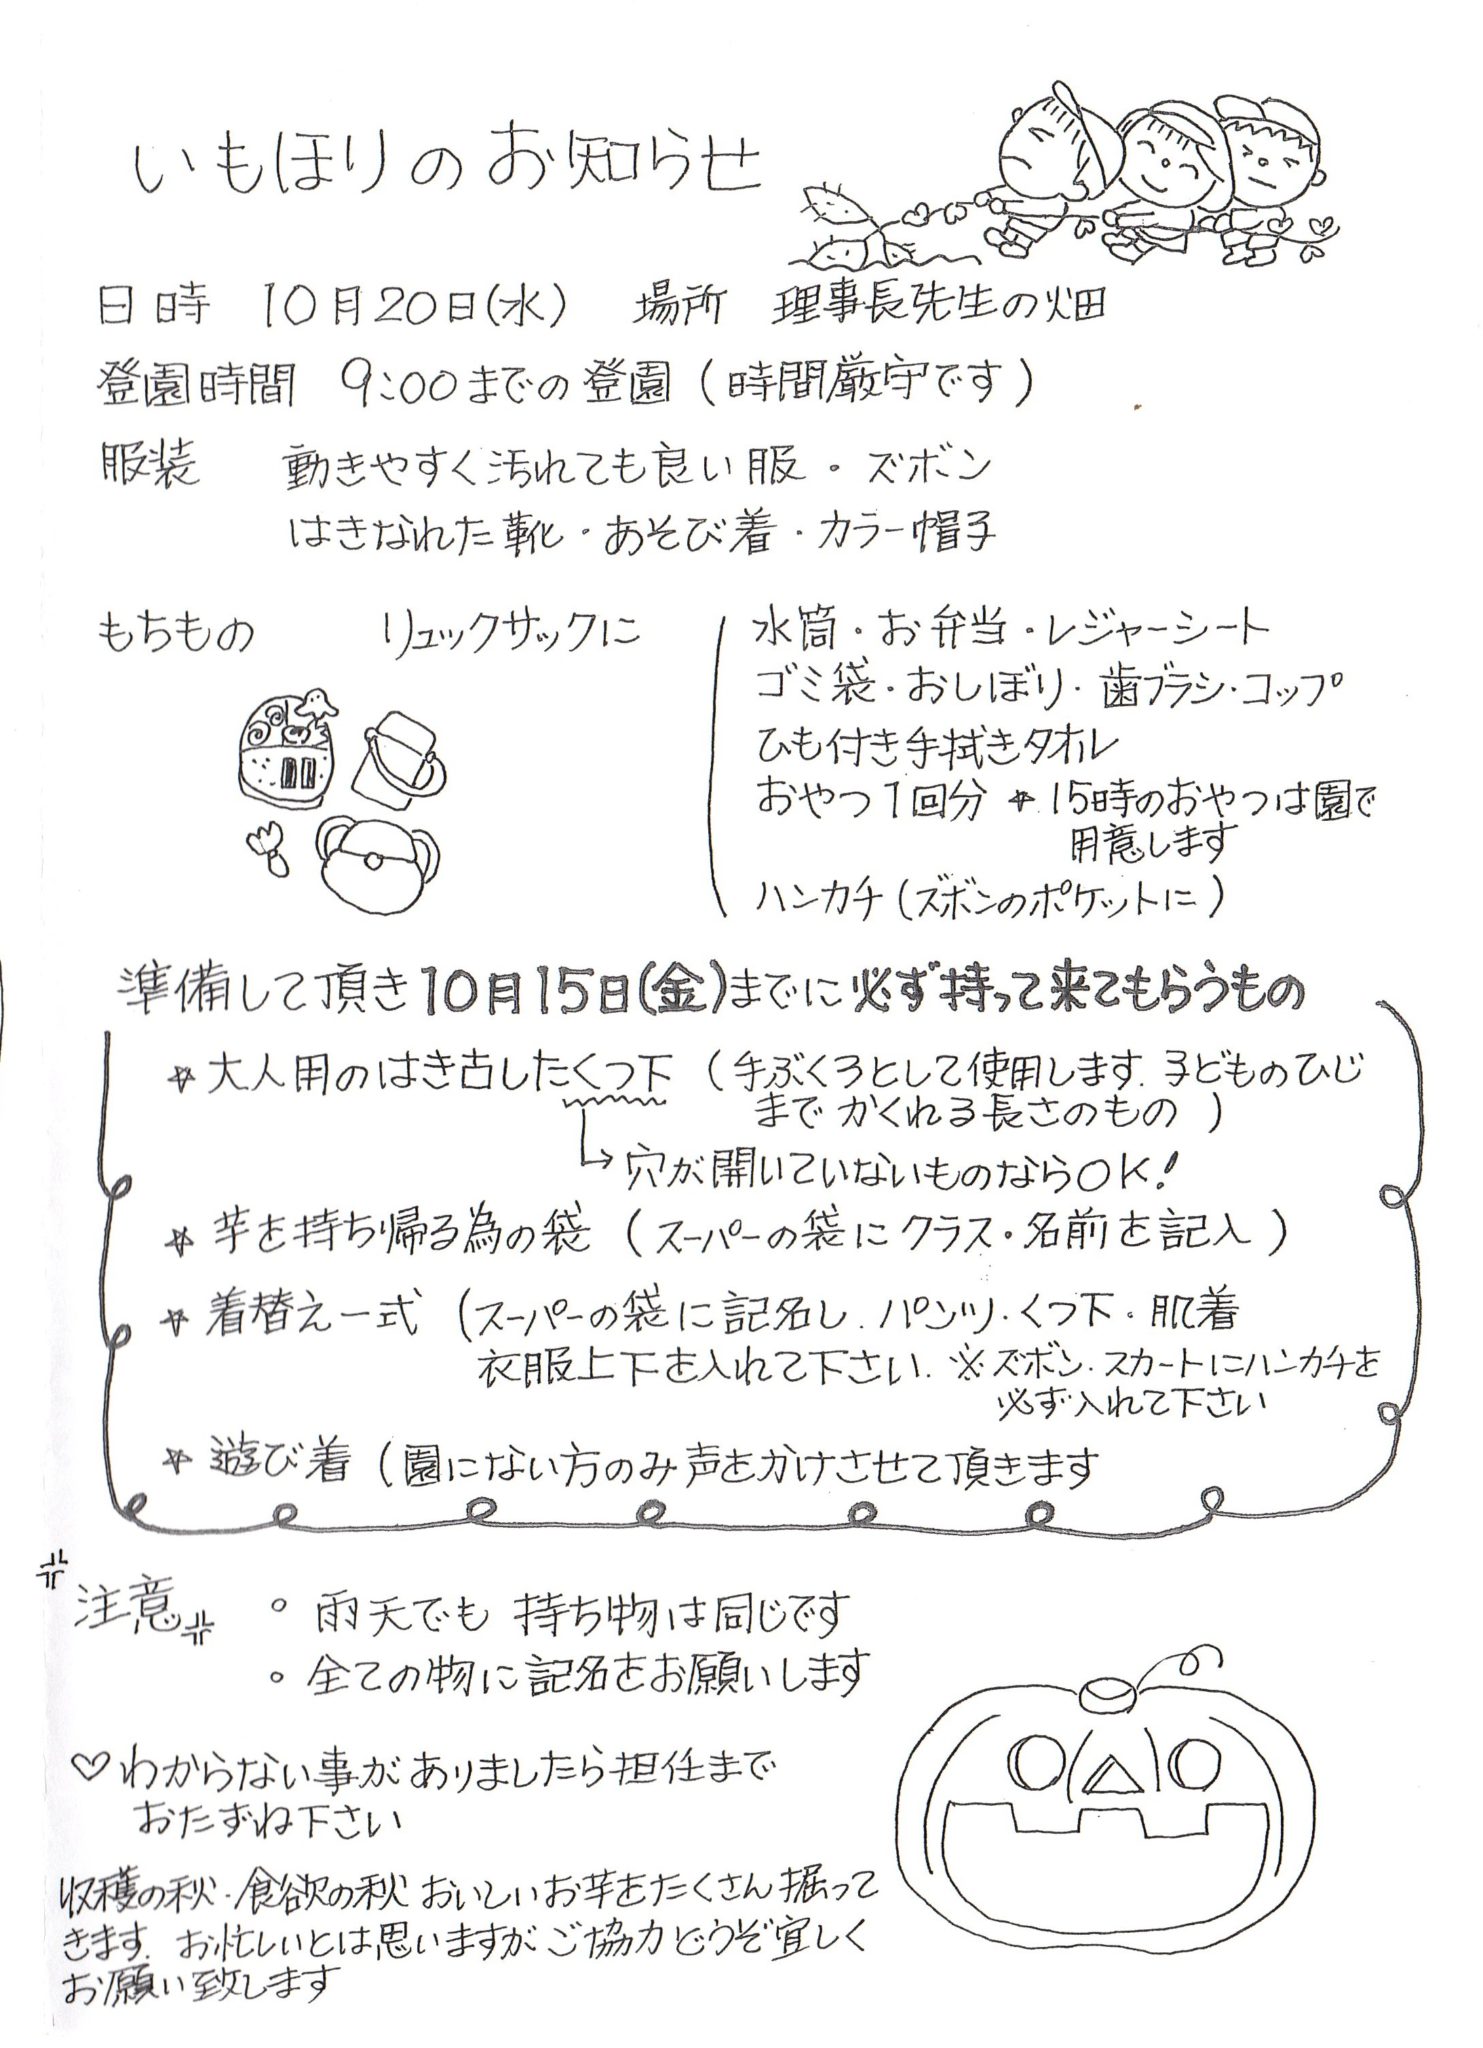 いもほりのお知らせ
日時 10月20日(水) 場所 理事長先生の畑
登園時間 9:00までの登園(時間厳守です)
服装 動きやすく汚れても良い服・ズボン
はきなれた靴・あそび着・カラー帽子
もちもの リュックサックに
水筒・お弁当・レジャーシート
ゴミ袋・おしぼり・歯ブラシ・コップ
ひも付き手拭きタオル
おやつ1回分 ☆15時のおやつは園で
用意します
ハンカチ(ズボンのポケットに)
準備して頂き10月15日(金)までに必ず持って来てもらうもの
☆大人用のはき古したくつ下(手ぶくろとして使用します.子どものひじ
までかくれる長さのもの)
↳穴が開いていないものならOK!
☆芋を持ち帰る為の袋(スーパーの袋にクラス・名前を記入)
☆着替え一式(スーパーの袋に記名し.パンツ・くつ下・肌着
衣服上下を入れて下さい.※ズボン・スカートにハンカチを
必ず入れて下さい
☆遊び着(園にない方のみ声をかけさせて頂きます
注意
○雨天でも持ち物は同じです
○全ての物に記名をお願いします
♡わからない事がありましたら担任まで
おたずね下さい
収穫の秋・食欲の秋おいしいお芋をたくさん掘って
きます.お忙しいとは思いますがご協力どうぞ宜しく
お願い致します